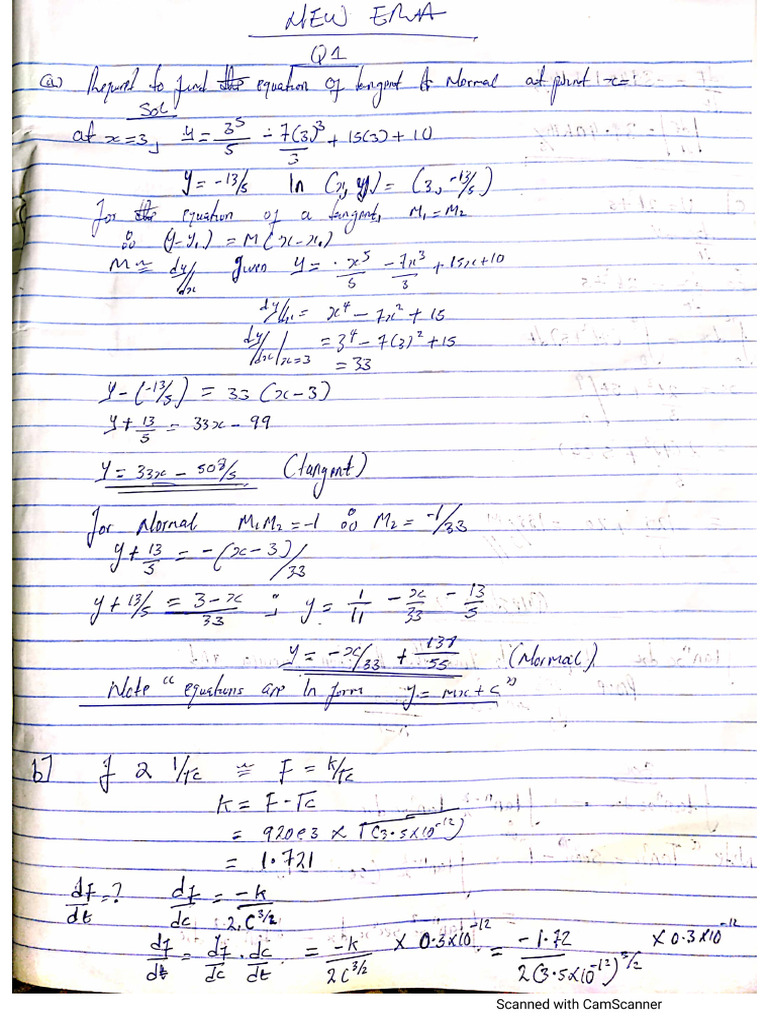 NEW ERA
Q1
(a) Required to find the equation of tangent & Normal at point x=
Sol
at x=3, y = 3⁵/5 - 7(3)³/3 + 15(3) + 10
y = -13/5 In (x, y) = (3, -13/5)
for the equation of a tangent, M₁ = M₂
∴ (y-y₁) = M(x-x₁)
M = dy/dx given y = x⁵/5 - 7x³/3 + 15x+10
dy/dx = x⁴ - 7x² + 15
dy/dx|x=3 = 3⁴ - 7(3)² + 15
= 33
y-(-13/5) = 33(x-3)
y + 13/5 = 33x - 99
y = 33x - 508/5 (tangent)
for Normal M₁M₂ = -1 ∴ M₂ = -1/33
y + 13/5 = -(x-3)/33
y + 13/5 = 3-x/33 ; y = 1/11 - x/33 - 13/5
y = -x/33 + 138/55 (Normal)
Note "equations are In form y = mx+c"
b] f α 1/√c ≃ F = k/√c
k = F·√c
= 920e3 × √(3.5×10⁻¹²)
= 1.721
df/dt = ? df/dc = -k/2.C^3/2
df/dt = df/dc · dc/dt = -k/2C^3/2 × 0.3×10⁻¹² = -1.72/2(3.5×10⁻¹²)^3/2 × 0.3×10⁻¹²
Scanned with CamScanner